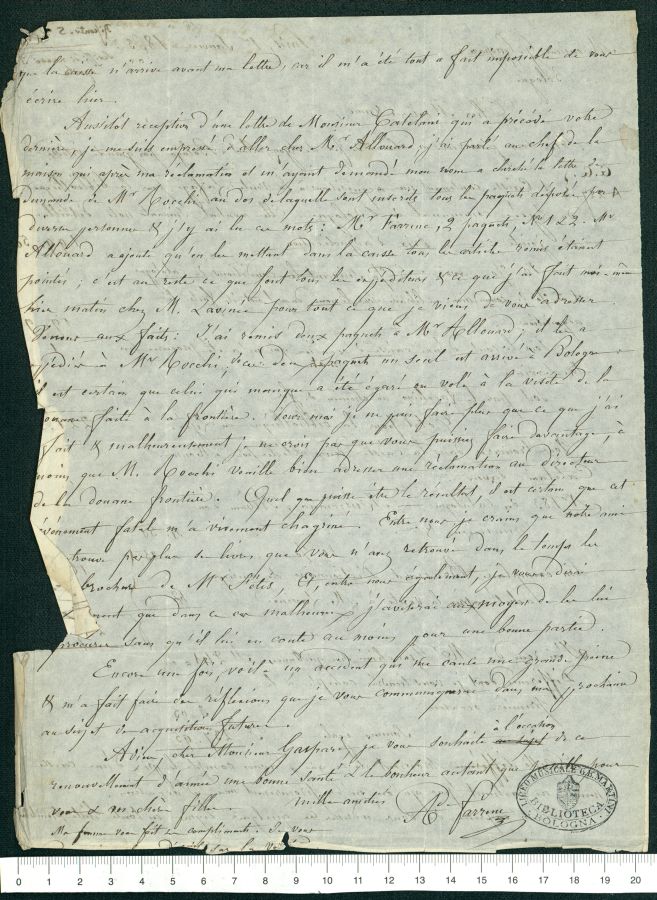 que la caisse n'arrive avant ma lettre, car il m'a été tout a fait impossible de vous
écrire hier.
Aussitôt réception d'une lettre de Monsieur Catelani qui a précédé votre
dernière, je me suis empressé d'aller chez Mr Allouard, j'ai parlé au chef de la
maison qui après ma réclamation et m'ayant demandé mon nom a cherché la lettre de
demande de Mr Rocchi au dos de laquelle sont inscrits tous les paquets déposés par
diverses personnes & j'y ai lu ces mots: Mr Farrenc, 2 paquets, No 122. Mr
Allouard a ajouté qu'en les mettant dans la caisse tous les articles remis étaient
pointés; c'est au reste ce que font tous les expéditeurs & ce que j'ai fait moi-même
hier matin chez M. Lavinée pour tout ce que je viens de vous adresser.
Venons aux faits: J'ai remis deux paquets à Mr Allouard; il les a
expédiés à Mr Rocchi; de ces deux paquets un seul est arrivé à Bologne
il est certain que celui qui manque a été égaré ou volé à la visite de la
douane faite à la frontière. Pour moi je ne puis faire plus que ce que j'ai
fait & malheureusement je ne crois pas que vous puissiez faire davantage, à
moins que M. Rocchi veuille bien adresser une réclamation au directeur
de la douane frontière. Quel que puisse être le résultat, il est certain que cet
évènement fatal m'a vivement chagriné. Entre nous je crains que notre ami
trouve pas plus de livres que vous n'avez retrouvé dans le temps les
brochures de Mr Fétis. Et, entre nous également, je vous dirai
que dans ce cas malheureux j'aviserai aux moyens de les lui
procurer sans qu'il lui en coute au moins pour une bonne partie.
Encore une fois, voilà un accident qui me cause une grande peine
& m'a fait faire des réflexions que je vous communiquerai dans ma prochaine
au sujet des acquisitions futures.
à l'occasion
Adieu, cher Monsieur Gaspari, je vous souhaite de ce
renouvellement d'année une bonne santé & le bonheur autant que pour
vous & vos chères filles. Mille amitiés Ade Farrenc
Ma femme vous fait ses compliments. Je vous
LICEO MUSICALE G.B. MARTINI
BIBLIOTECA
BOLOGNA
0 1 2 3 4 5 6 7 8 9 10 11 12 13 14 15 16 17 18 19 20